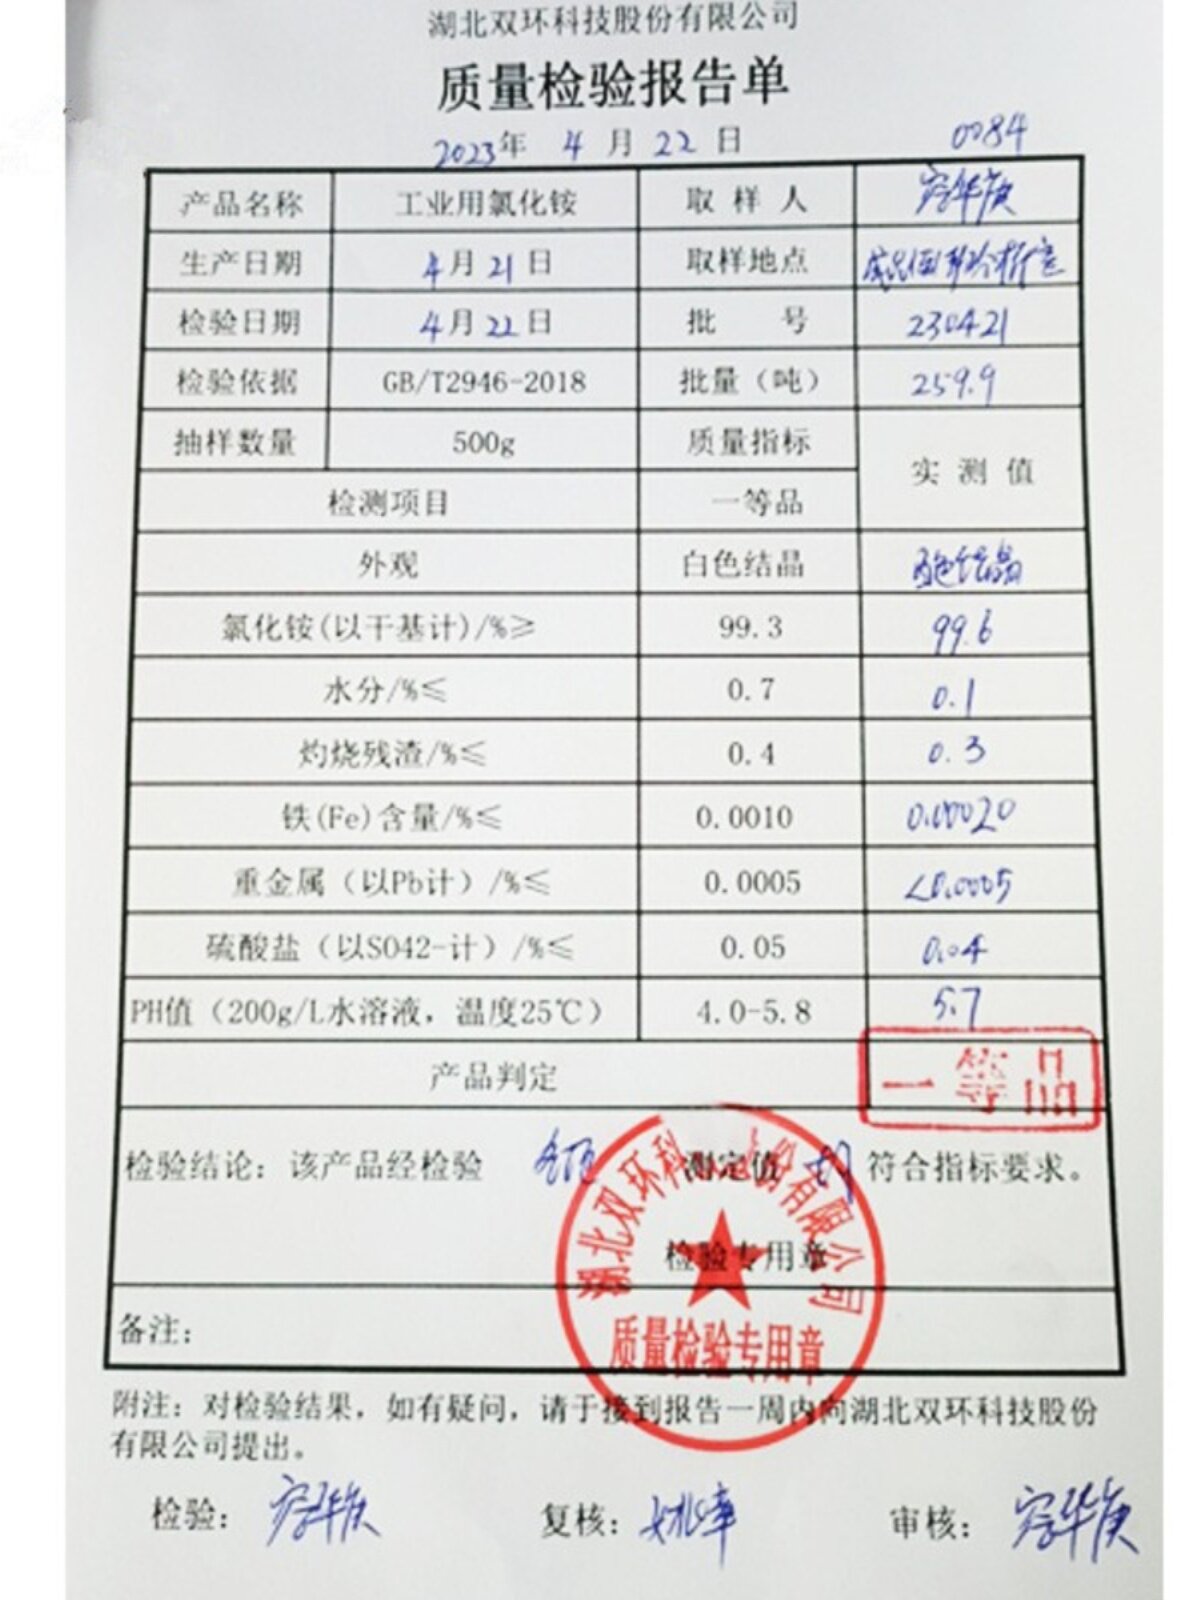 湖北双环科技股份有限公司
质量检验报告单
2023年 4 月 22 日 0084
产品名称 工业用氯化铵 取 样 人
生产日期 4月 21 日 取样地点
检验日期 4月 22 日 批 号 230421
检验依据 GB/T2946-2018 批量（吨） 259.9
抽样数量 500g 质量指标 实 测 值
检测项目 一等品
外观 白色结晶 白色结晶
氯化铵(以干基计)/%≥ 99.3 99.6
水分/%≤ 0.7 0.1
灼烧残渣/%≤ 0.4 0.3
铁(Fe)含量/%≤ 0.0010 0.00020
重金属（以Pb计）/%≤ 0.0005 <0.0005
硫酸盐（以SO42-计）/%≤ 0.05 0.04
PH值（200g/L水溶液，温度25℃） 4.0-5.8 5.7
产品判定 一等品
检验结论：该产品经检验 测定值 符合指标要求。
检验专用章
湖北双环科技股份有限公司
质量检验专用章
备注：
附注：对检验结果，如有疑问，请于接到报告一周内向湖北双环科技股份
有限公司提出。
检验： 复核： 审核：